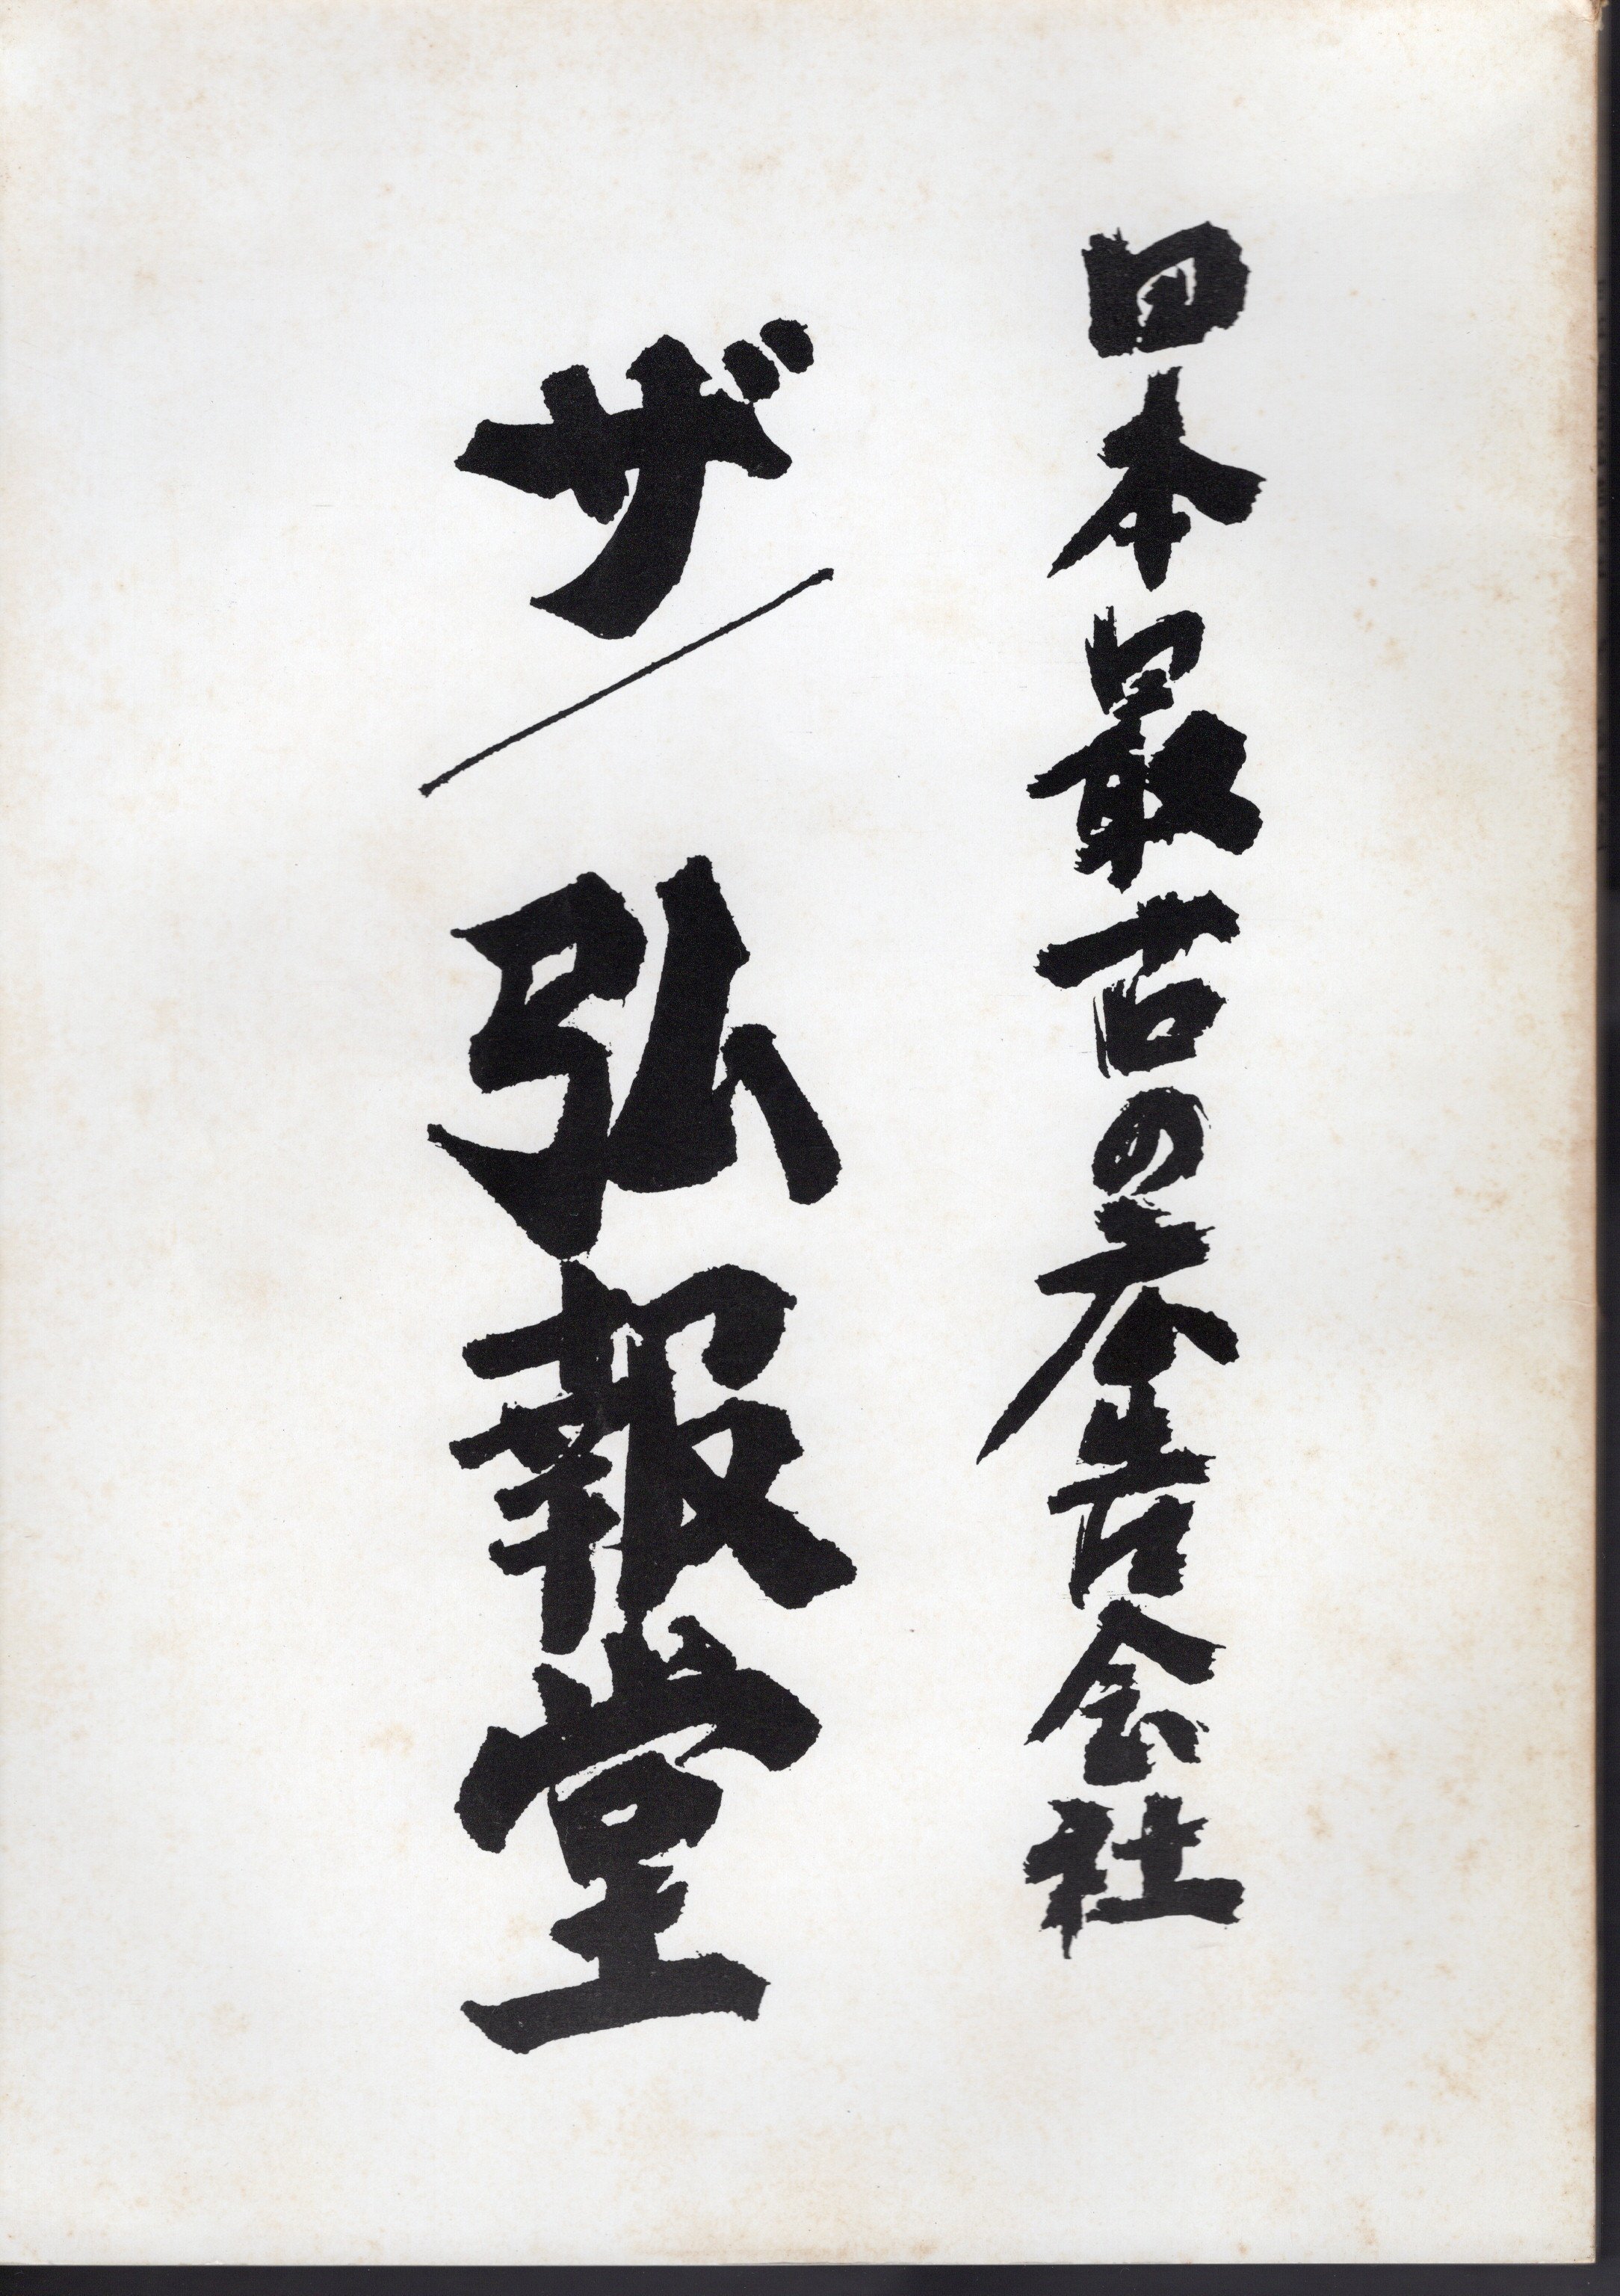 日本最古の広告会社
ザ／弘報堂